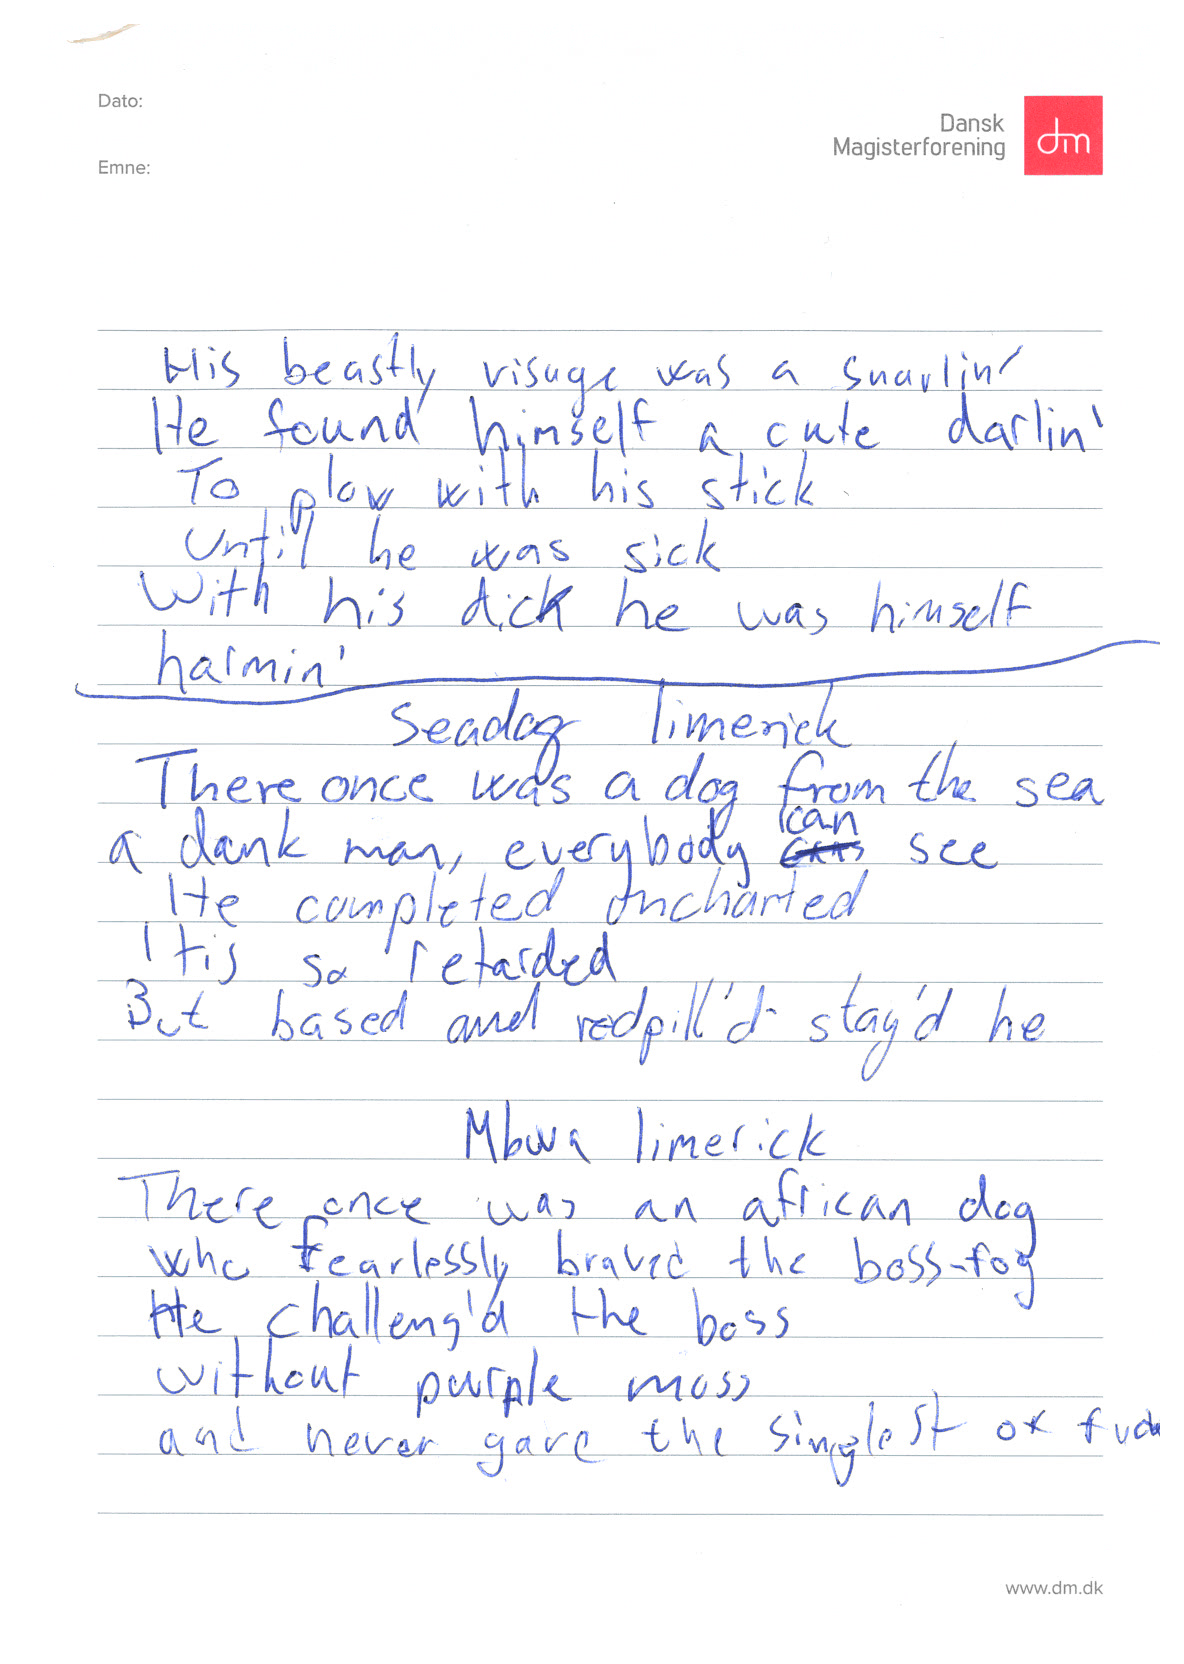 Dato:
Dansk
Magisterforening
dm
Emne:
His beastly visage was a snarlin'
He found himself a cute darlin'
To plow with his stick
Until he was sick
With his dick he was himself
harmin'
Seadog limerick
There once was a dog from the sea
can
a dank man, everybody see
He completed Uncharted
It is so retarded
But based and redpill'd stay'd he
Mbwa limerick
There once was an african dog
who fearlessly braved the boss-fog
He challeng'd the boss
without purple moss
and never gave the singlest of
www.dm.dk